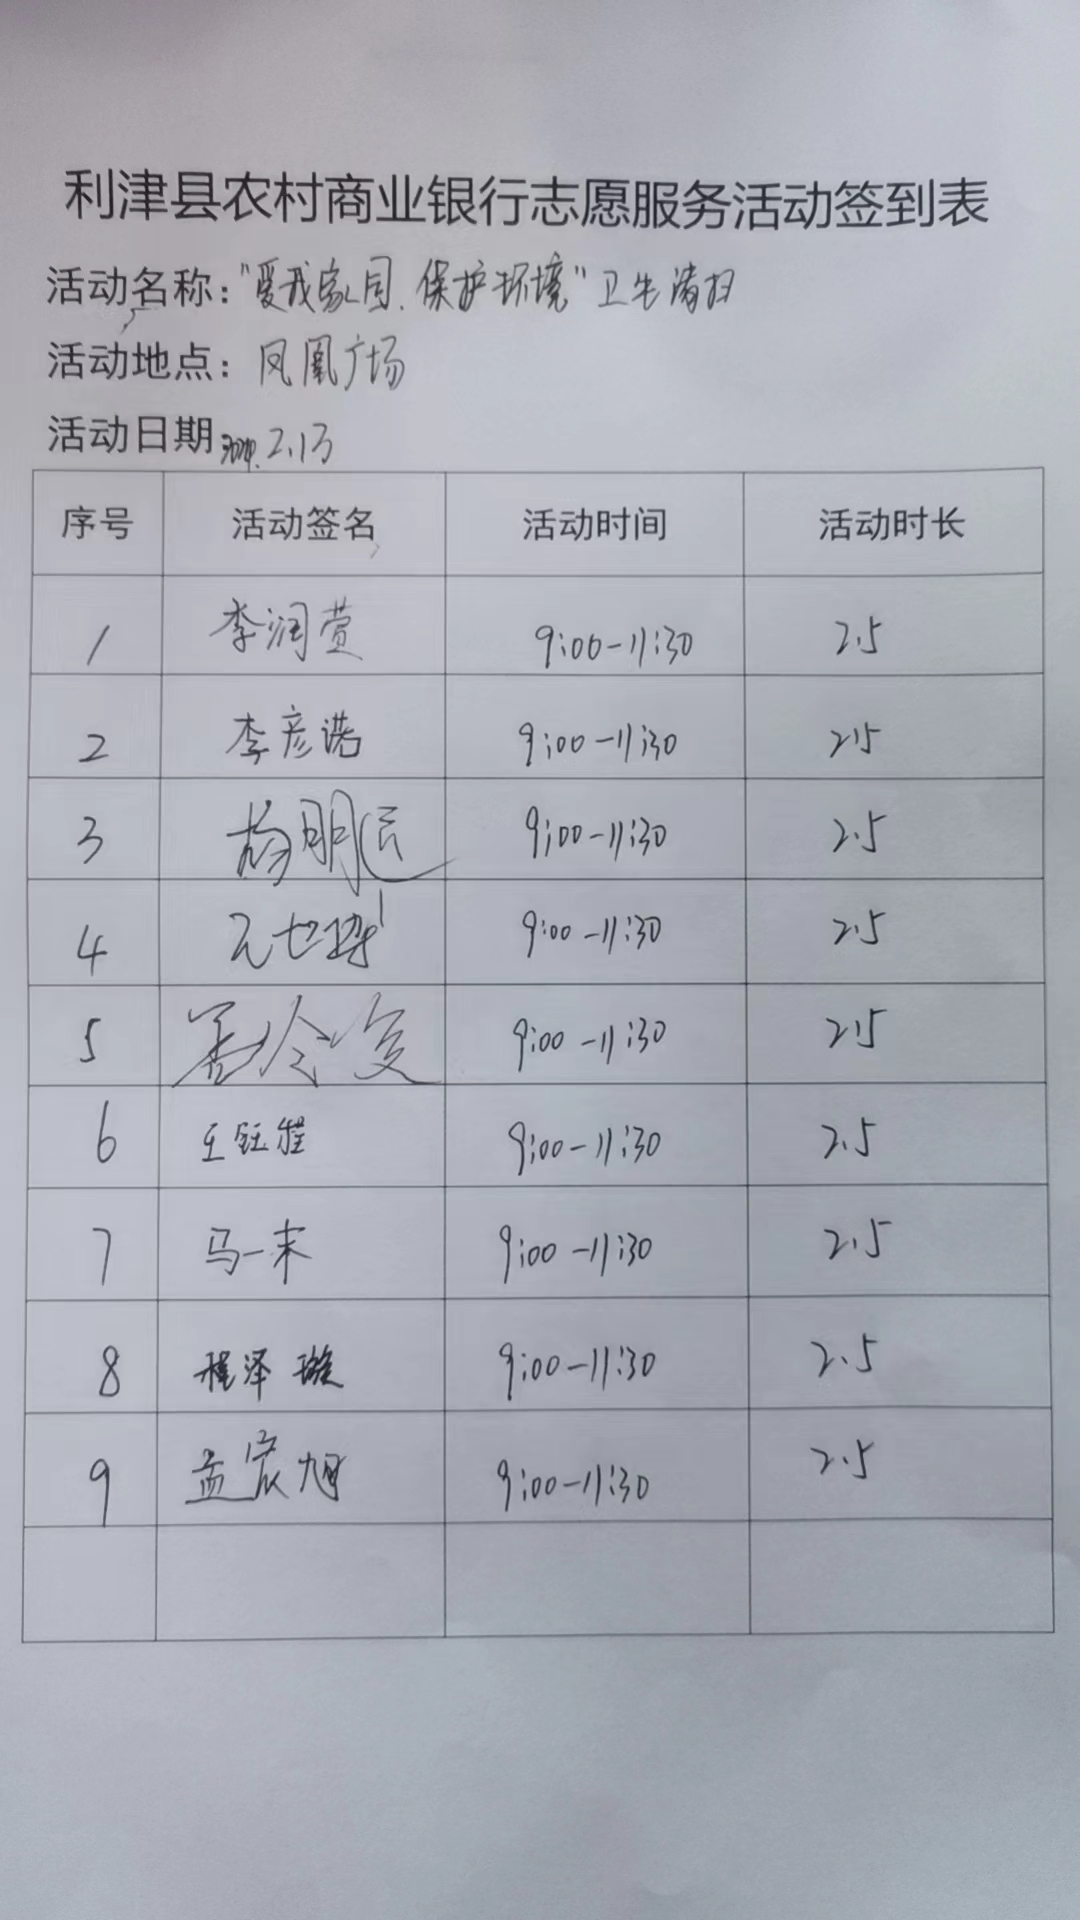 利津县农村商业银行志愿服务活动签到表
活动名称："爱我家园、保护环境"卫生清扫
活动地点：凤凰广场
活动日期 2.13
序号 活动签名 活动时间 活动时长
1 李润萱 9:00-11:30 2.5
2 李彦诺 9:00-11:30 2.5
3 杨明远 9:00-11:30 2.5
4 9:00-11:30 2.5
5 9:00-11:30 2.5
6 王钰 9:00-11:30 2.5
7 马一末 9:00-11:30 2.5
8 程泽璇 9:00-11:30 2.5
9 孟宸旭 9:00-11:30 2.5